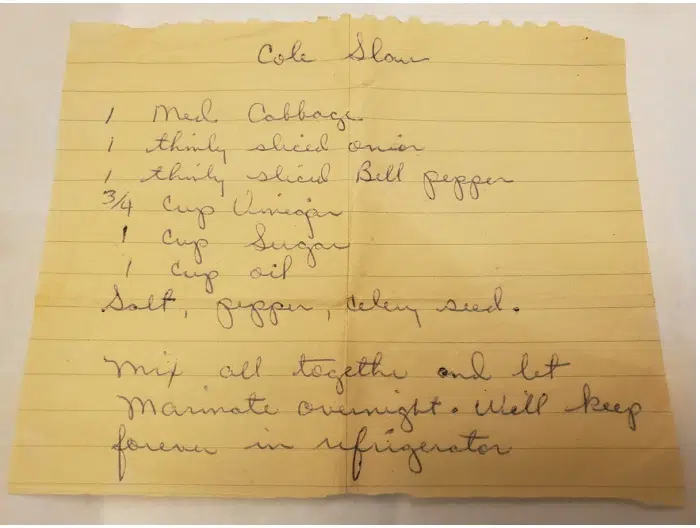 Cole Slaw
1 Med Cabbage
1 thinly sliced onion
1 thinly sliced Bell pepper
3/4 cup Vinegar
1 cup Sugar
1 cup oil
Salt, pepper, celery seed.
Mix all together and let
Marinate overnight. Will keep
forever in refrigerator